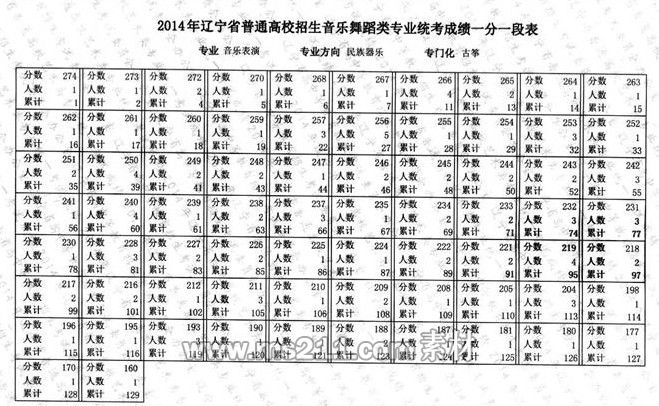 2014年辽宁省普通高校招生音乐舞蹈类专业统考成绩一分一段表
专业 音乐表演 专业方向 民族器乐 专门化 古筝
分数 274 分数 273 分数 272 分数 270 分数 268 分数 267 分数 266 分数 265 分数 264 分数 263
人数 1 人数 1 人数 2 人数 1 人数 1 人数 1 人数 4 人数 2 人数 1 人数 1
累计 1 累计 2 累计 4 累计 5 累计 6 累计 7 累计 11 累计 13 累计 14 累计 15
分数 262 分数 261 分数 260 分数 259 分数 257 分数 256 分数 255 分数 254 分数 253 分数 252
人数 1 人数 1 人数 1 人数 1 人数 3 人数 5 人数 1 人数 1 人数 3 人数 1
累计 16 累计 17 累计 18 累计 19 累计 22 累计 27 累计 28 累计 29 累计 32 累计 33
分数 251 分数 250 分数 249 分数 248 分数 247 分数 246 分数 245 分数 244 分数 243 分数 242
人数 2 人数 4 人数 2 人数 2 人数 1 人数 2 人数 2 人数 2 人数 2 人数 3
累计 35 累计 39 累计 41 累计 43 累计 44 累计 46 累计 48 累计 50 累计 52 累计 55
分数 241 分数 240 分数 239 分数 238 分数 237 分数 235 分数 234 分数 233 分数 232 分数 231
人数 1 人数 4 人数 1 人数 2 人数 3 人数 1 人数 2 人数 2 人数 3 人数 3
累计 56 累计 60 累计 61 累计 63 累计 66 累计 67 累计 69 累计 71 累计 74 累计 77
分数 230 分数 228 分数 227 分数 226 分数 225 分数 224 分数 222 分数 221 分数 219 分数 218
人数 1 人数 3 人数 2 人数 2 人数 1 人数 1 人数 2 人数 2 人数 4 人数 2
累计 78 累计 81 累计 83 累计 85 累计 86 累计 87 累计 89 累计 91 累计 95 累计 97
分数 217 分数 216 分数 212 分数 211 分数 210 分数 209 分数 208 分数 205 分数 204 分数 198
人数 2 人数 2 人数 1 人数 3 人数 1 人数 2 人数 1 人数 1 人数 3 人数 1
累计 99 累计 101 累计 102 累计 105 累计 106 累计 108 累计 109 累计 110 累计 113 累计 114
分数 196 分数 195 分数 193 分数 190 分数 189 分数 188 分数 187 分数 181 分数 180 分数 177
人数 1 人数 1 人数 3 人数 1 人数 1 人数 2 人数 1 人数 1 人数 1 人数 1
累计 115 累计 116 累计 119 累计 120 累计 121 累计 123 累计 124 累计 125 累计 126 累计 127
www.ms211.com 素材
分数 170 分数 160
人数 1 人数 1
累计 128 累计 129